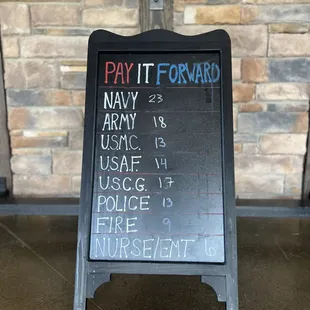 PAY IT FORWARD
NAVY 23
ARMY 18
U.S.M.C. 13
USAF. 14
U.S.C.G. 17
POLICE 13
FIRE 9
NURSE/EMT 6